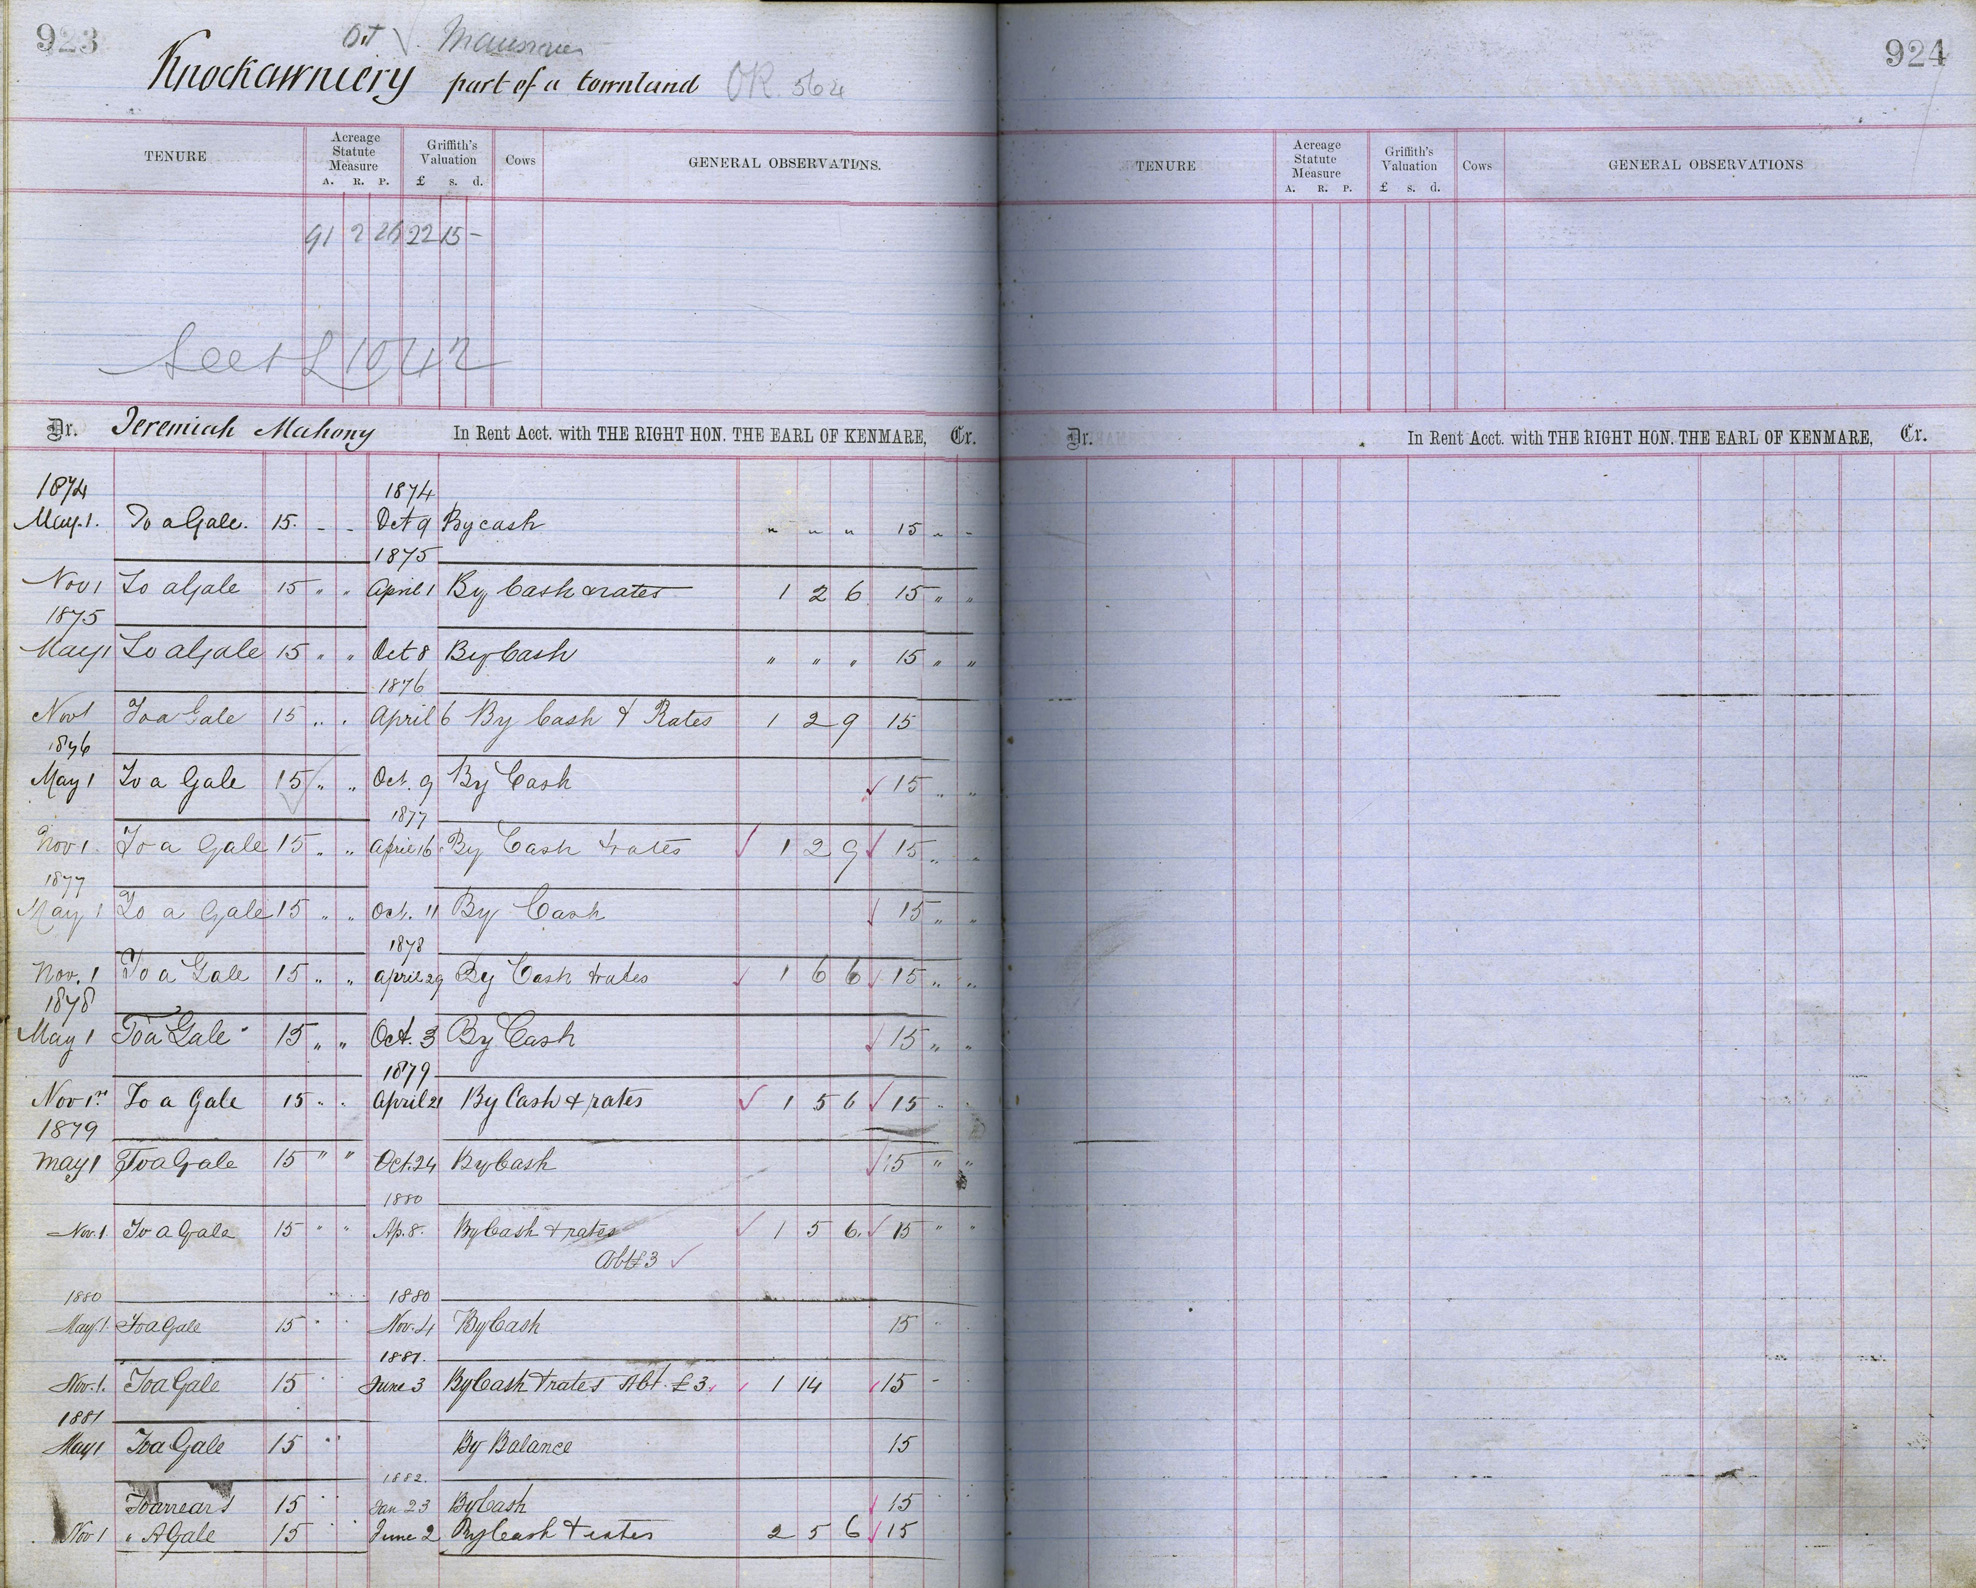 923
Knockawniery part of a townland OR. 564
TENURE Acreage Statute Measure A. R. P. Griffith's Valuation £ s. d. Cows GENERAL OBSERVATIONS.
91 2 26 22 15 -
See L 1042
Dr. Jeremiah Mahony In Rent Acct. with THE RIGHT HON. THE EARL OF KENMARE, Cr.
1874 1874
May. 1. To a Gale. 15. - - Oct 9 By cash " " " 15 " -
1875
Nov 1 To a Gale 15 " " April 1 By Cash & rates 1 2 6 15 " "
1875
May 1 To a Gale 15 " " Oct 8 By Cash " " " 15 " "
1876
Nov 1 To a Gale 15 " " April 6 By Cash & Rates 1 2 9 15
1876
May 1 To a Gale 15 " " Oct. 9 By Cash 15 " "
1877
Nov 1 To a Gale 15 " " April 16 By Cash & rates 1 2 9 15 " "
1877
May 1 To a Gale 15 " " Oct. 11 By Cash 15 " "
1878
Nov. 1 To a Gale 15 " " April 29 By Cash & rates 1 6 6 15 " "
1878
May 1 To a Gale 15 " " Oct. 3 By Cash 15 " "
1879
Nov 1 To a Gale 15 " " April 21 By Cash & rates 1 5 6 15 "
1879
May 1 To a Gale 15 " " Oct. 24 By Cash 15 " "
1880
Nov. 1 To a Gale 15 " " Ap. 8. By Cash & rates 1 5 6. 15 " "
Abt £3
1880 1880
May. 1 To a Gale 15 " Nov. 4 By Cash 15 "
1881.
Nov. 1. To a Gale 15 " June 3 By Cash & rates Abt. £3. 1 14 15 -
1881
May 1 To a Gale 15 " By Balance 15
1882.
To arrears 15 " Jan 23 By Cash 15
Nov 1 " A Gale 15 June 2 By Cash & rates 2 5 6 15
924
TENURE Acreage Statute Measure A. R. P. Griffith's Valuation £ s. d. Cows GENERAL OBSERVATIONS
Dr. In Rent Acct. with THE RIGHT HON. THE EARL OF KENMARE, Cr.